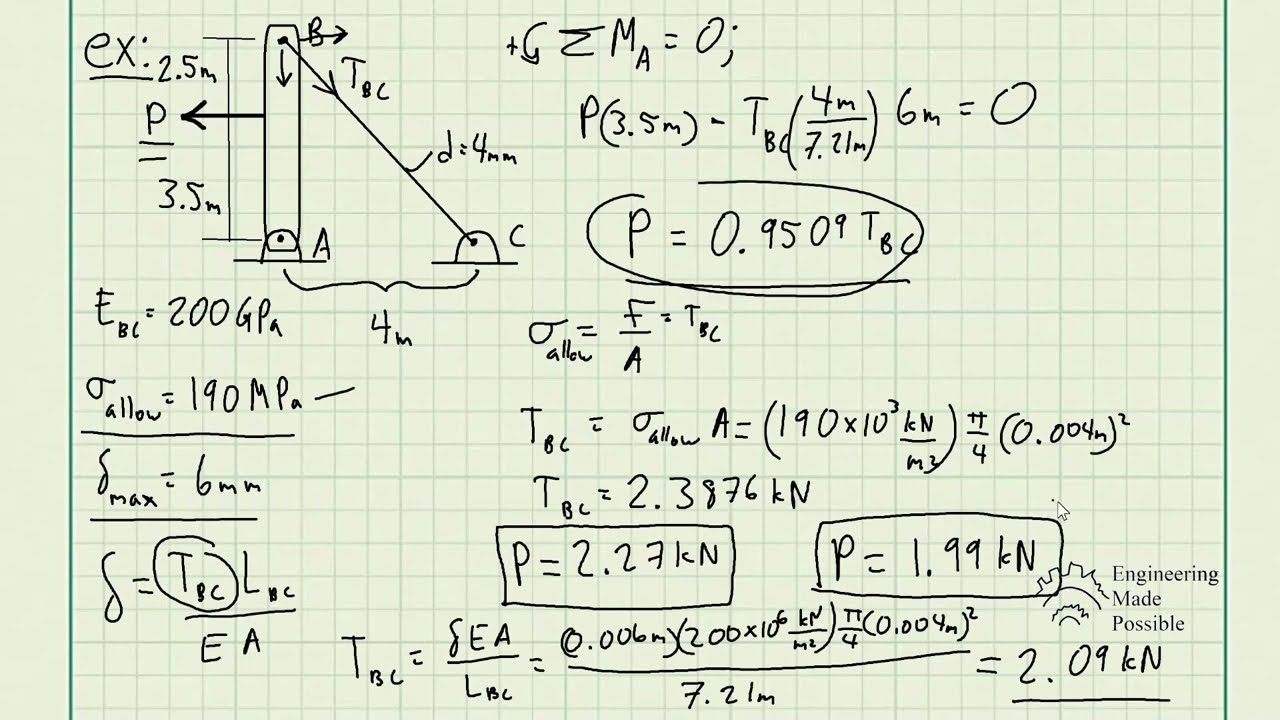 ex:
B
2.5m
T_BC
P
d=4mm
3.5m
A
C
4m
E_BC = 200 GPa
σ_allow = 190 MPa
δ_max = 6mm
δ = T_BC L_BC / E A
+ Σ M_A = 0;
P(3.5m) - T_BC (4m/7.21m) 6m = 0
P = 0.9509 T_BC
σ_allow = F/A = T_BC
T_BC = σ_allow A = (190×10³ kN/m²) π/4 (0.004m)²
T_BC = 2.3876 kN
P = 2.27 kN
P = 1.99 kN
T_BC = δEA / L_BC = (0.006m)(200×10⁶ kN/m²) π/4 (0.004m)² / 7.21m = 2.09 kN
Engineering
Made
Possible